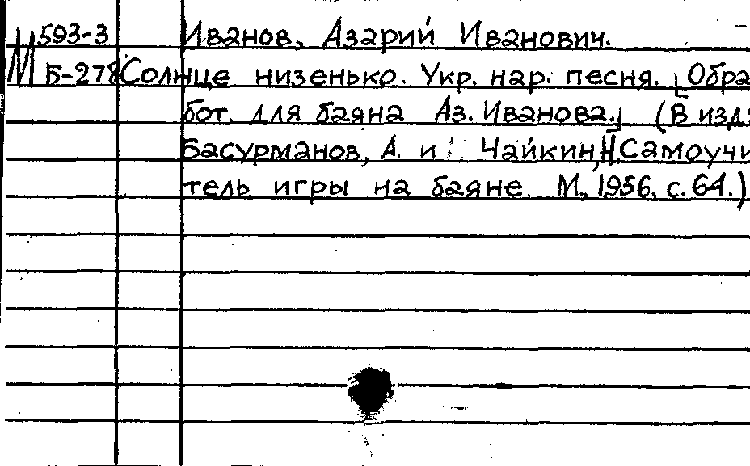 М 593-3 Иванов, Азарий Иванович.
Б-278 Солнце низенько. Укр. нар. песня. [Обра-
бот. для баяна Аз. Иванова.] (В изд:
Басурманов, А. и Чайкин, Н. Самоучи-
тель игры на баяне. М., 1956, с. 64.)